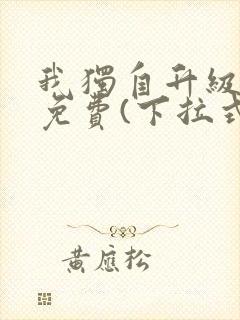 我獨自升級
免費(下拉式
黃應松